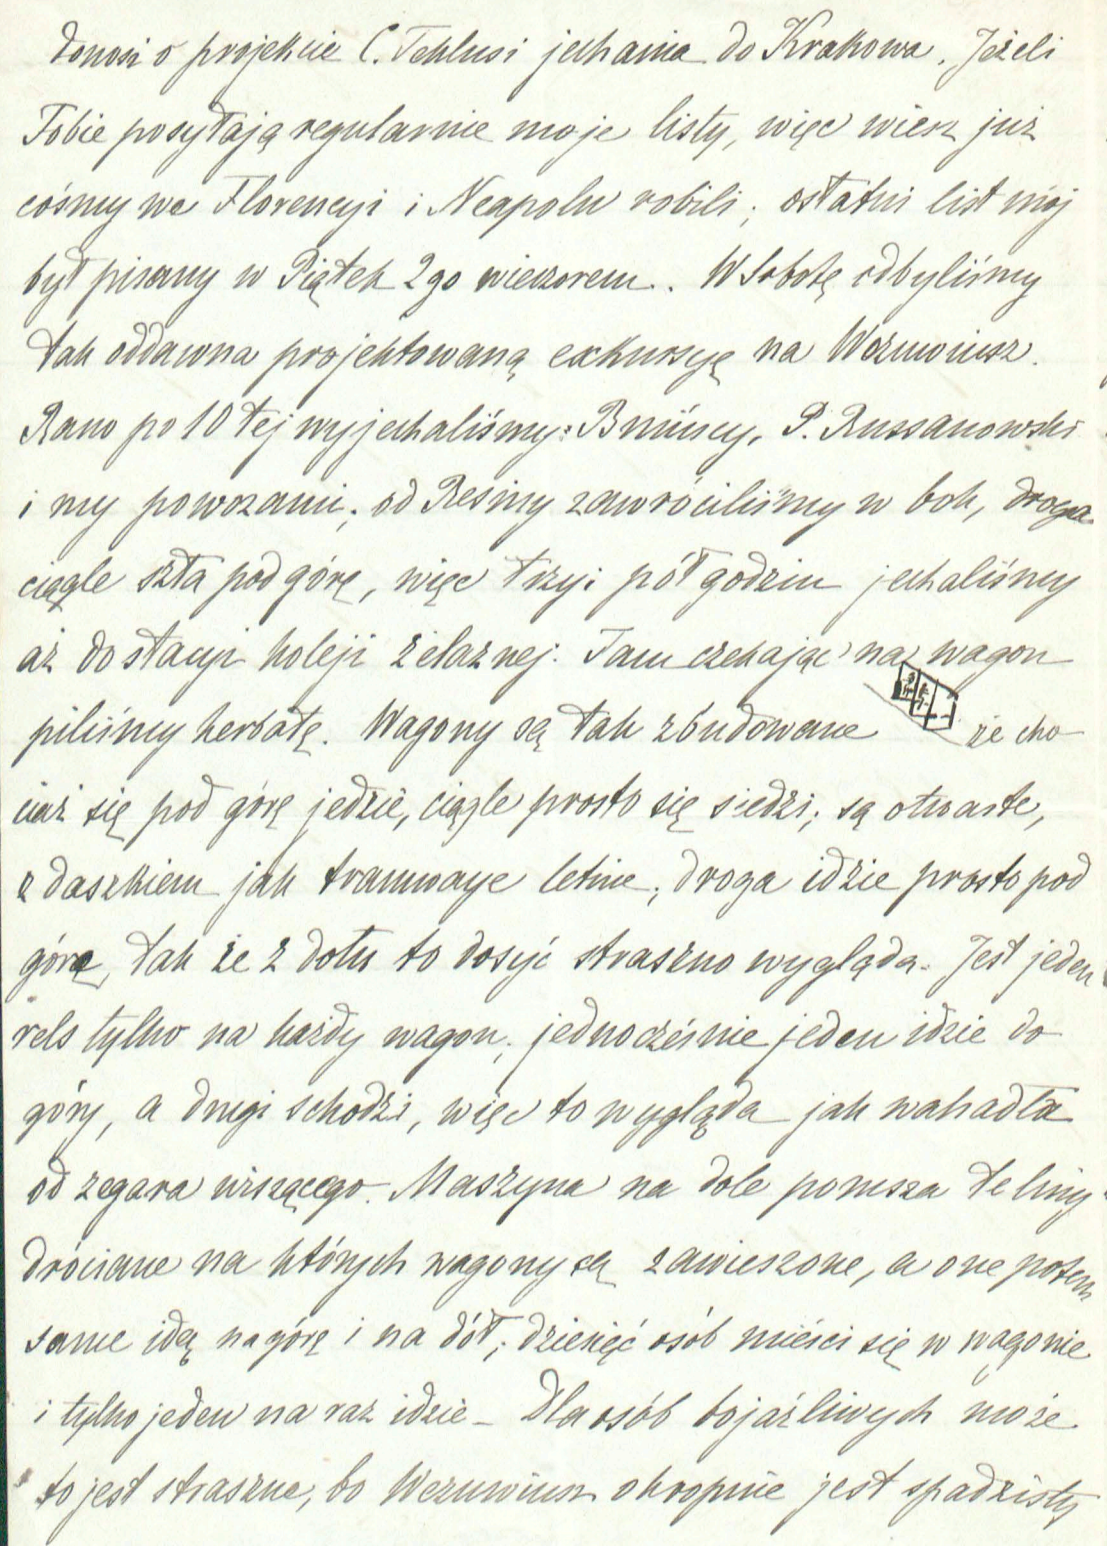 donosi o projekcie C. Teklusi jechania do Krakowa. Jeżeli
Tobie posyłają regularnie moje listy, więc wiesz już
cośmy we Florencyi i Neapolu robili; ostatni list mój
był pisany w Piątek 2go wieczorem. W Sobotę odbyliśmy
tak oddawna projektowaną exkursyę na Wezuwiusz.
Rano po 10tej wyjechaliśmy: Bnińscy, P. Russanowski
i my powozami; od Resiny zawróciliśmy w bok, droga
ciągle szła pod górę, więc trzy i pół godzin jechaliśmy
aż do stacyi koleji żelaznej. Tam czekając na wagon
piliśmy herbatę. Wagony są tak zbudowane że cho
ciaż się pod górę jedzie, ciągle prosto się siedzi; są otwarte,
z daszkiem jak tramwaye letnie; droga idzie prosto pod
górę, tak że z dołu to dosyć straszno wygląda. Jest jeden
rels tylko na każdy wagon; jednocześnie jeden idzie do
góry, a drugi schodzi, więc to wygląda jak wahadła
od zegara wiszącego. Maszyna na dole porusza te liny
dróciane na których wagony są zawieszone, a one potem
same idą na górę i na dół; dziesięć osób mieści się w wagonie
i tylko jeden na raz idzie – Dla osób bojaźliwych może
to jest straszne, bo Wezuwiusz okropnie jest spadzisty